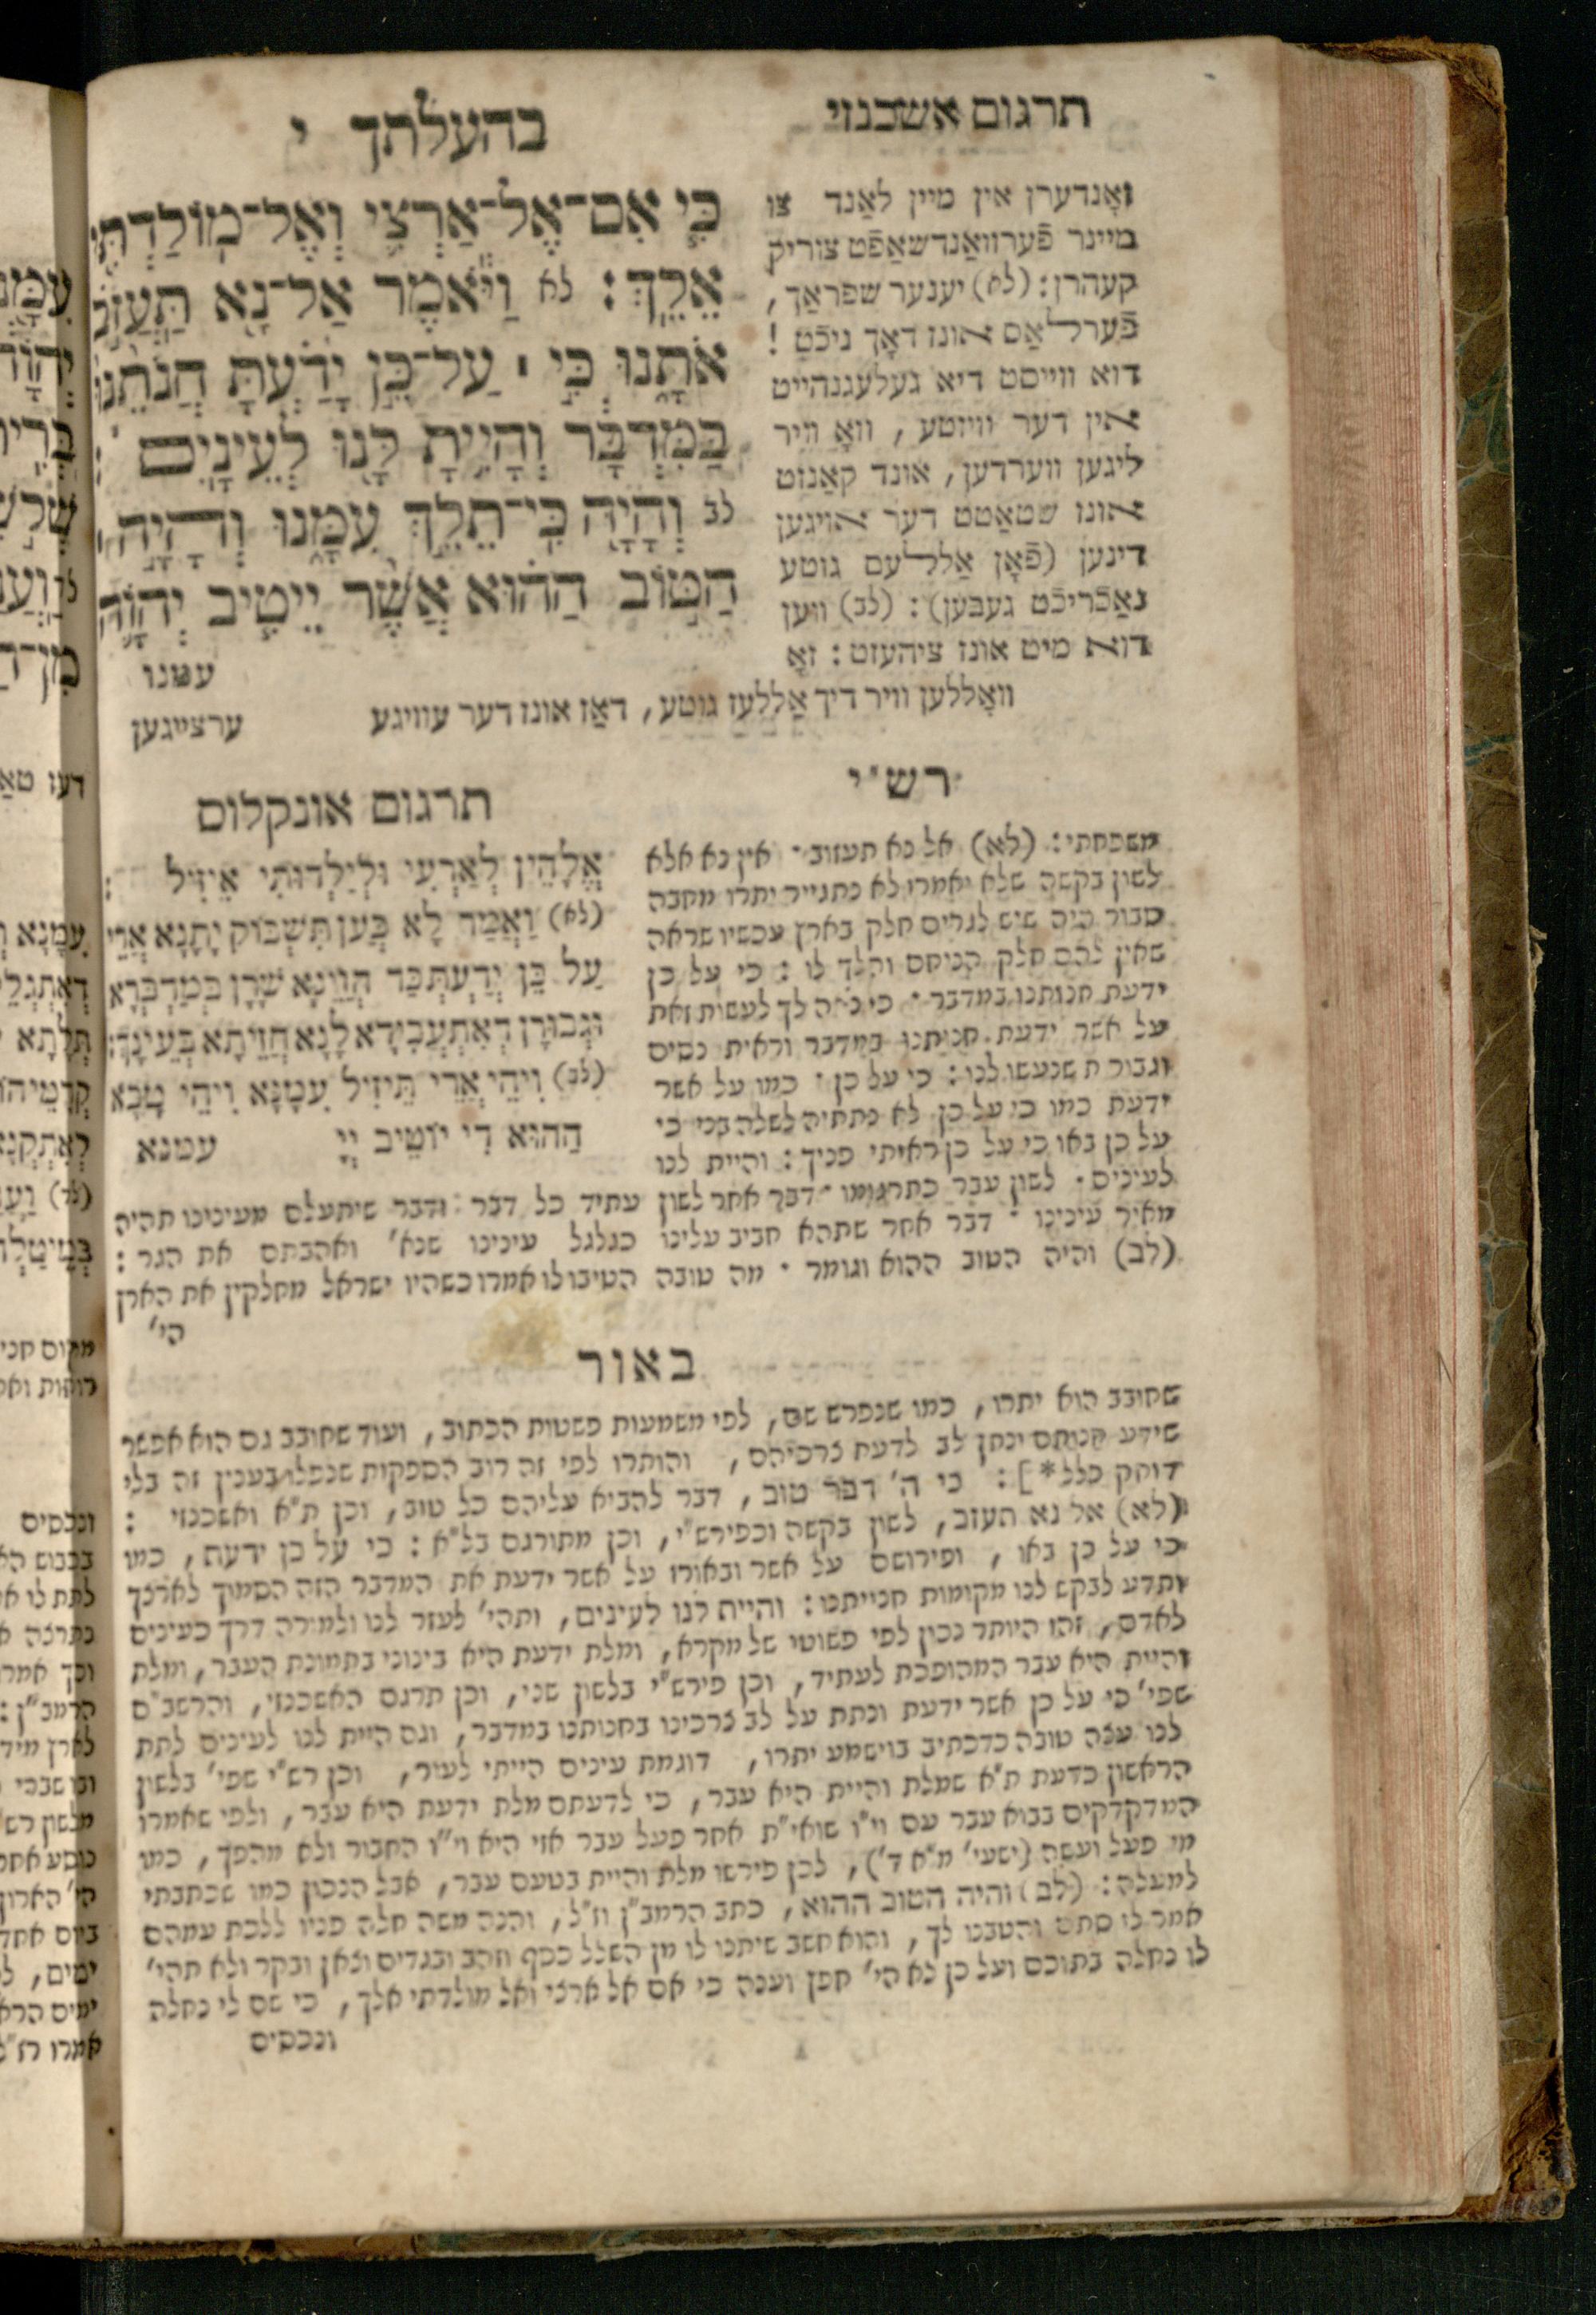 תרגום אשכנזי
בהעלתך י
כִּ֧י אִם־אֶל־אַרְצִ֛י וְאֶל־מֽוֹלַדְתִּ֖י
אֵלֵֽךְ׃ לא וַיֹּ֕אמֶר אַל־נָ֖א תַּעֲזֹ֣ב
אֹתָ֑נוּ כִּ֣י ׀ עַל־כֵּ֣ן יָדַ֗עְתָּ חֲנֹתֵ֙נוּ֙
בַּמִּדְבָּ֔ר וְהָיִ֥יתָ לָּ֖נוּ לְעֵינָֽיִם׃
לב וְהָיָ֖ה כִּי־תֵלֵ֣ךְ עִמָּ֑נוּ וְהָיָ֣ה ׀
הַטּ֣וֹב הַה֗וּא אֲשֶׁ֨ר יֵיטִ֧יב יְהוָֹ֛ה
עמנו
זאָנדערן אין מיין לאַנד צו
מיינר פֿערוואַנדשאַפֿט צוריק
קעהרן: (לא) יענער שפראַך,
פֿערלאַס אונז דאָך ניכֿט!
דוא ווייסט דיא געלעגנהייט
אין דער וויזטע, וואָ וויר
ליגען ווערדען, אונד קאַנזט
אונז שטאַטט דער אויגען
דינען (פֿאָן אַללעם גוטע
נאַכֿריכֿט געבען): (לב) ווען
דוא מיט אונז ציהעזט: זאָ
וואָללען וויר דיך אַללעז גוטע, דאַז אונז דער עוויגע
ערצייגען
רש"י
משפחתי: (לא) אל נא תעזוב· אין נא אלא
לשון בקשה שלא יאמרו לא נתגייר יתרו מחבה
סבור היה שיש לגרים חלק בארץ עכשיו שראה
שאין להם חלק הניחם והלך לו: כי על כן
ידעת חנותנו במדבר· כי נאה לך לעשות זאת
על אשר ידעת חנותנו במדבר וראית נסים
וגבורת שנעשו לנו: כי על כן· כמו על אשר
ידעת כמו כי על כן לא נתתיה לשלה בני כי
על כן באו כי על כן ראיתי פניך: והיית לנו
לעינים· לשון עבר כתרגומו· דבר אחר לשון עתיד כל דבר ודבר שיתעלם מעינינו תהיה
מאיר עינינו· דבר אחר שתהא חביב עלינו כגלגל עינינו שנא' ואהבתם את הגר:
(לב) והיה הטוב ההוא וגומר· מה טובה הטיבו לו אמרו כשהיו ישראל מחלקין את הארץ
הי'
תרגום אונקלוס
אֱלָהֵין לְאַרְעִי וּלְיַלְדוּתִי אֵיזִיל׃
(לא) וַאֲמַר לָא כְּעַן תִּשְׁבּוֹק יָתָנָא אֲרֵי
עַל כֵּן יְדַעְתְּ כַּד הֲוֵינָא שָׁרָן בְּמַדְבְּרָא
וּגְבוּרָן דְאִתְעֲבִידָא לָנָא חֲזֵיתָא בְּעֵינָךְ׃
(לב) וִיהֵי אֲרֵי תֵיזִיל עִמָנָא וִיהֵי טָבָא
הַהוּא דִי יוֹטֵיב יְיָ
עמנא
באור
שחובב הוא יתרו, כמו שנפרש שם, לפי משמעות פשטות הכתוב, ועוד שחובב גם הוא אפשר
שידע חנותם ינתן לב לדעת צרכיהם, והותרו לפי זה רוב הספקות שנפלו בענין זה בלי
דוחק כלל*]: כי ה' דבר טוב, דבר להביא עליהם כל טוב, וכן ת"א ואשכנזי:
(לא) אל נא תעזב, לשון בקשה וכפירש"י, וכן מתורגם בל"א: כי על כן ידעת, כמו
כי על כן באו, ופירושם על אשר ובאורו על אשר ידעת את המדבר הזה הסמוך לארצך
ותדע לבקש לנו מקומות חנייתנו: והיית לנו לעינים, ותהי' לעזר לנו ולמורה דרך כעינים
לאדם, זהו היותר נכון לפי פשוטי של מקרא, ומלת ידעת היא בינוני בתמונת העבר, ומלת
והיית היא עבר המהופכת לעתיד, וכן פירש"י בלשון שני, וכן תרגם האשכנזי, והרשב"ם
שפי' כי על כן אשר ידעת ונתת על לב צרכינו בחנותנו במדבר, וגם היית לנו לעינים לתת
לנו עצה טובה כדכתיב בוישמע יתרו, דוגמת עינים הייתי לעור, וכן רש"י שפי' בלשון
הראשון כדעת ת"א שמלת והיית היא עבר, כי לדעתם מלת ידעת היא עבר, ולפי שאמרו
המדקדקים בבוא עבר עם וי"ו שואי"ת אחר פעל עבר אזי היא וי"ו החבור ולא מהפך, כמו
מי פעל ועשה (ישעי' מ"א ד'), לכן פירשו מלת והיית בטעם עבר, אבל הנכון כמו שכתבתי
למעלה: (לב) והיה הטוב ההוא, כתב הרמב"ן וז"ל, והנה משה חלה פניו ללכת עמהם
אמר לו סתם והטבנו לך, והוא חשב שיתנו לו מן השלל כסף וזהב ובגדים וצאן ובקר ולא תהי'
לו נחלה בתוכם ועל כן לא הי' חפץ וענה כי אם אל ארצי ואל מולדתי אלך, כי שם לי נחלה
ונכסים